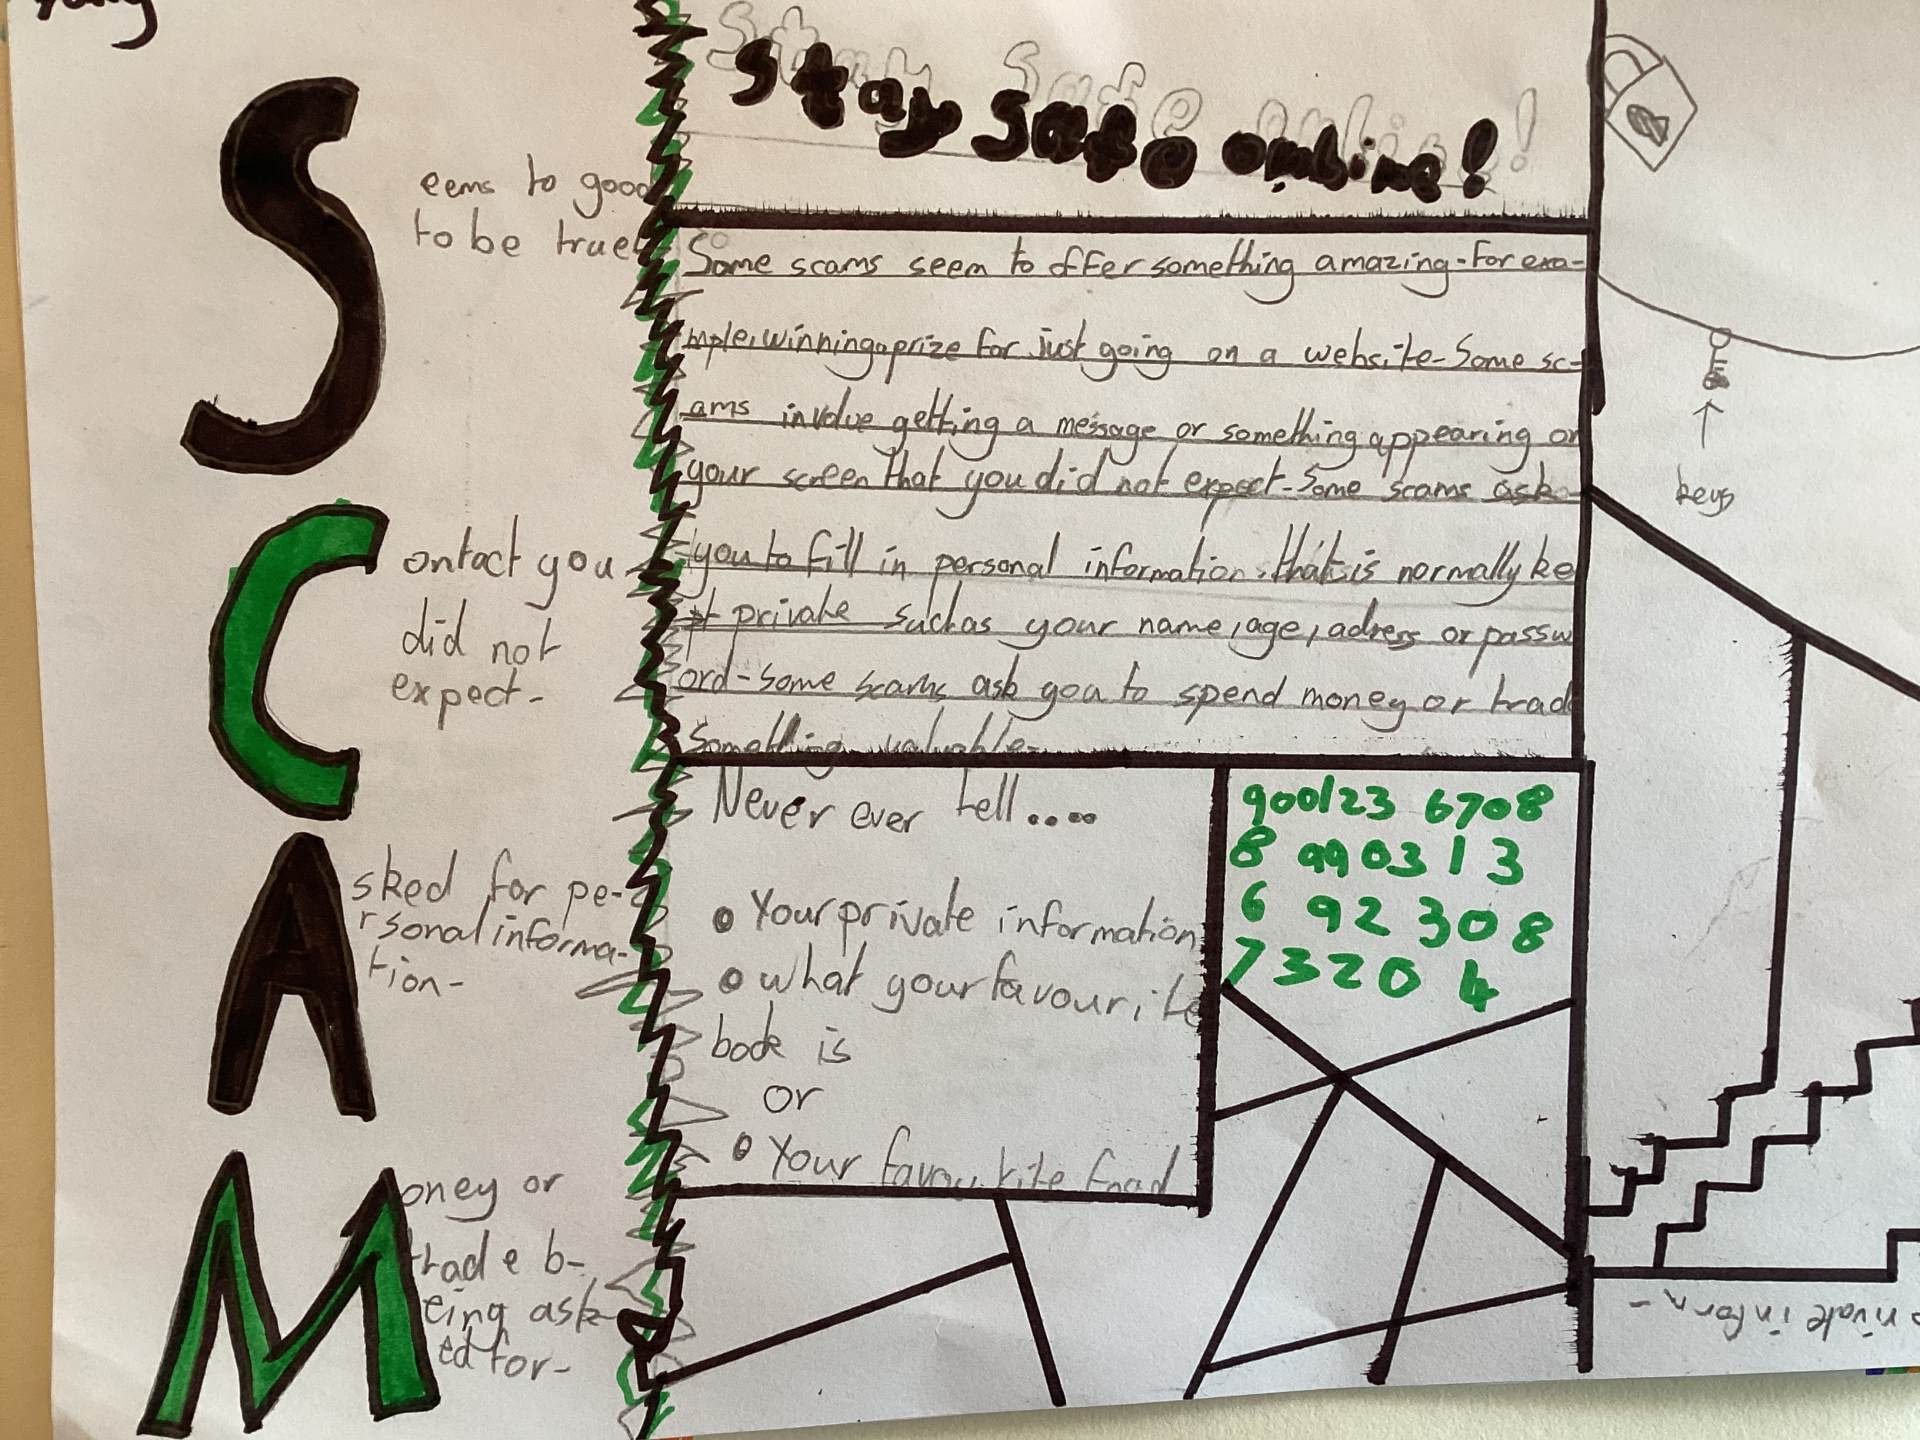 S eems to good
to be true
C ontact you
did not
expect-
A sked for pe-
rsonal informa-
tion-
M oney or
trade b-
eing ask
ed for-
Stay Safe online!
Some scams seem to offer something amazing-For exa-
mple, winning a prize for just going on a website-Some sc-
ams involve getting a message or something appearing on
your screen that you did not expect-Some scams ask
you to fill in personal information. that is normally ke
pt private such as your name, age, adress or passw
ord-some scams ask you to spend money or trade
something valuable-
Never ever tell....
• Your private information
• what your favourite
book is
or
• Your favourite food
900123 6708
8 990313
6 92 308
7320 4
keys
private inform-